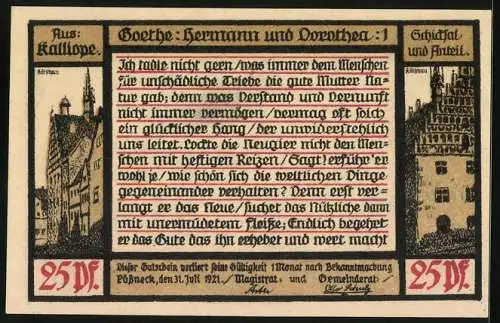 Aus:
Kalliope.
Goethe: Hermann und Dorothea :1
Schicksal
und Anteil.
Ich tadle nicht gern/was immer dem Menschen
für unschädliche Triebe die gute Mutter Na=
tur gab; denn was Verstand und Vernunft
nicht immer vermögen/vermag oft solch
ein glücklicher Hang/der unwiderstehlich
uns leitet. Lockte die Neugier nicht den Men=
schen mit heftigen Reizen/Sagt! erführ'er
wohl je/wie schön sich die weltlichen Dinge
gegeneinander verhalten? Denn erst ver=
langt er das Neue/suchet das Nützliche dann
mit unermüdetem Fleiße; Endlich begehret
er das Gute das ihn erhebet und wert macht
25 Pf.
25 Pf.
Dieser Gutschein verliert seine Gültigkeit 1 Monat nach Bekanntmachung
Pößneck, den 31. Juli 1921. Magistrat und Gemeinderat: